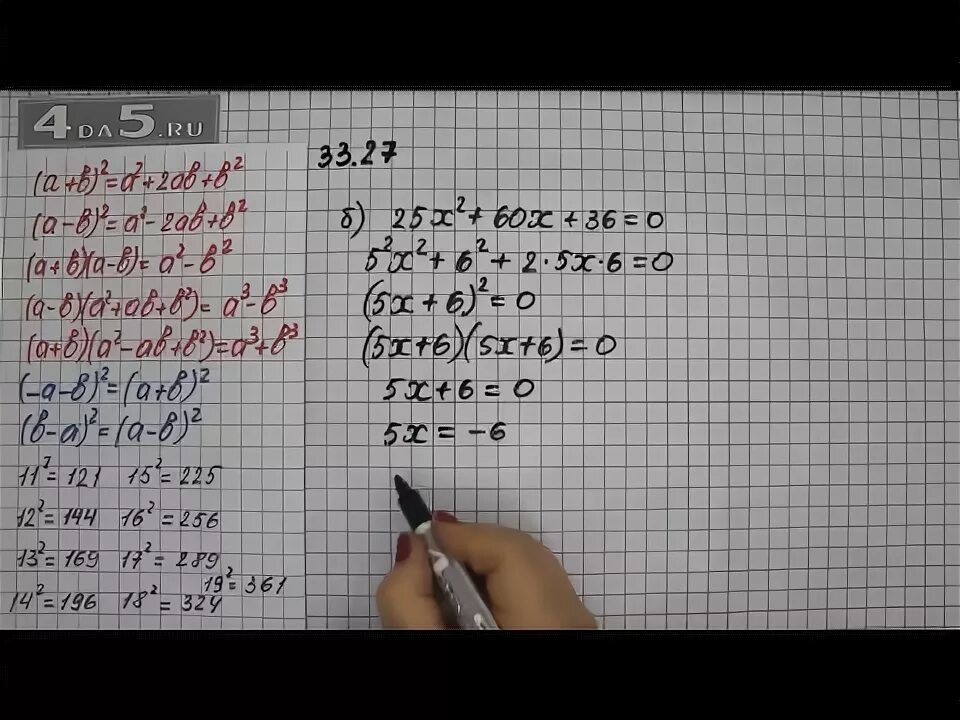 4DA5.RU
(a+b)²=a²+2ab+b²
(a-b)²=a²-2ab+b²
(a+b)(a-b)=a²-b²
(a-b)(a²+ab+b²)=a³-b³
(a+b)(a²-ab+b²)=a³+b³
(-a-b)²=(a+b)²
(b-a)²=(a-b)²
11²=121 15²=225
12²=144 16²=256
13²=169 17²=289
19²=361
14²=196 18²=324
33.27
б) 25x²+60x+36=0
5²x²+6²+2·5x·6=0
(5x+6)²=0
(5x+6)(5x+6)=0
5x+6=0
5x=-6